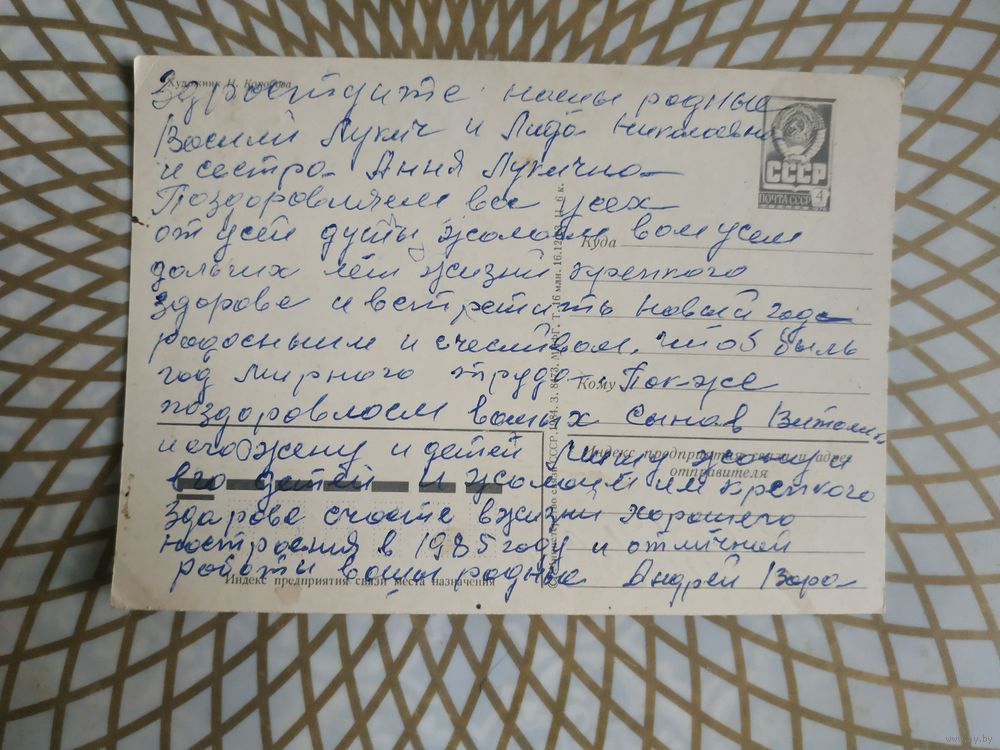 Художник Н. Коробова
Здраствуйте нашы родные
Василий Лукич и Лида Николаевна
и сестра Анна Лукична
Поздоровляем вас усех
от усей душы жалаем вам усем
дольших лет жизни крепкого
здорове и встретить новый года
радосным и счесливам, чтоб быль
год мирного труда. Так-же
поздоровлаем вашых сынав Витали
и его жену и детей жену и
его детей и жалаем им крепкого
здарове счасте в жизни хорошего
настроения в 1985 году и отличной
работы вашы родные Андрей Вара
СССР
ПОЧТА СССР 4
Куда
Кому
Индекс предприятия связи и адрес
отправителя
Индекс предприятия связи места назначения